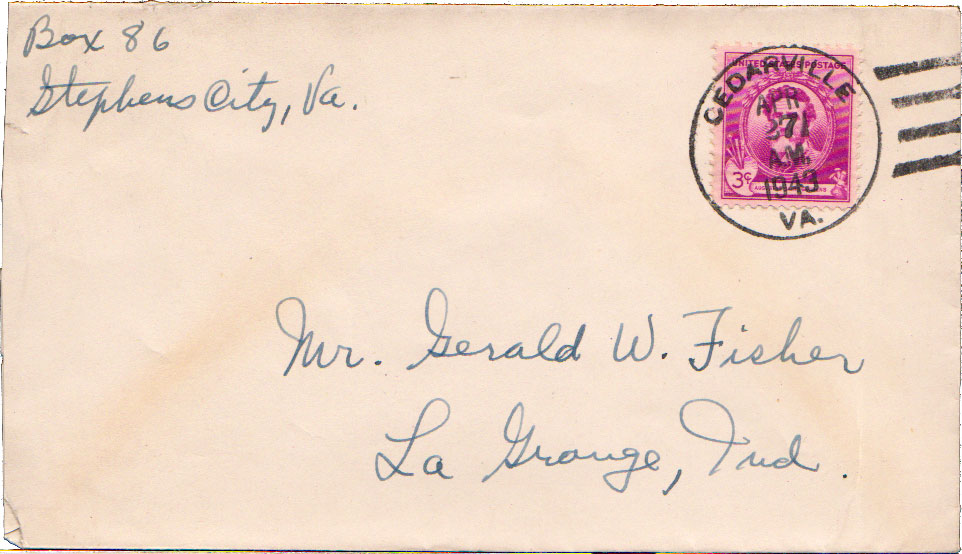 Box 86
Stephens City, Va.
UNITED STATES POSTAGE
CEDARVILLE
APR
27
A.M.
1943
VA.
3¢
Mr. Gerald W. Fisher
La Grange, Ind.